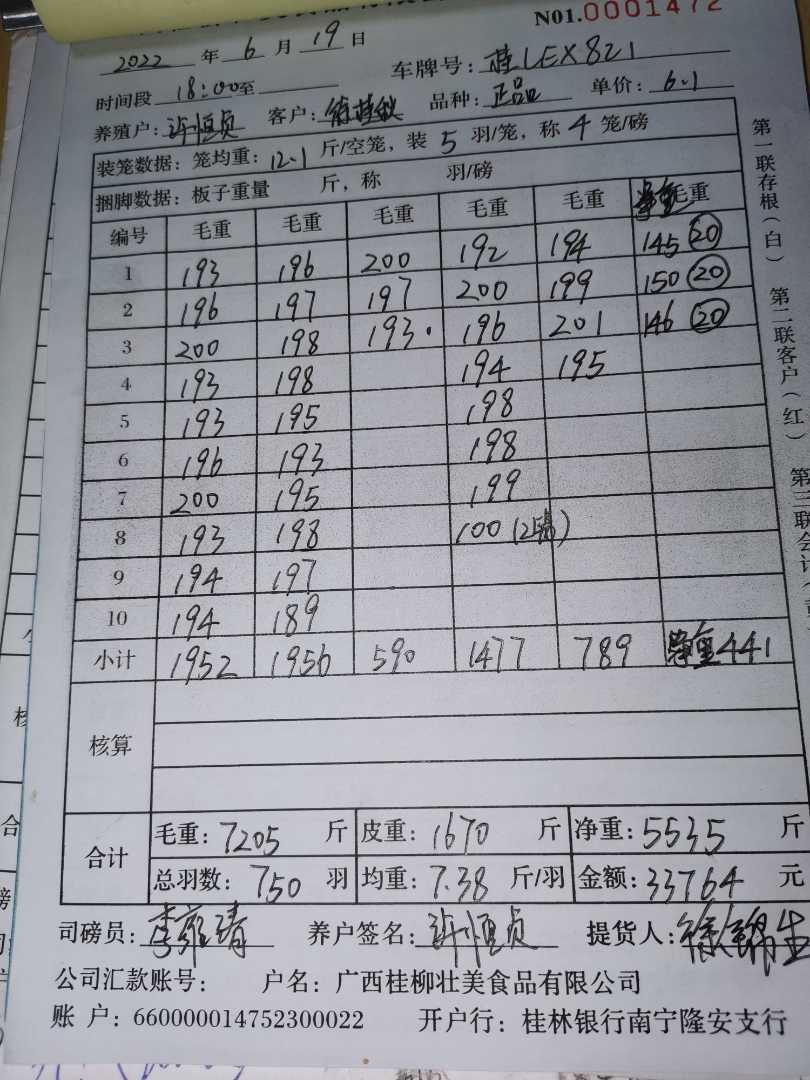 N01.0001472
2022 年 6 月 19 日
时间段 18:00至 车牌号: 桂LEX821
养殖户: 许恒贞 客户: 品种: 正品 单价: 6.1
装笼数据: 笼均重: 12.1 斤/空笼, 装 5 羽/笼, 称 4 笼/磅
捆脚数据: 板子重量 斤, 称 羽/磅
编号 毛重 毛重 毛重 毛重 毛重 净重 毛重
1 193 196 200 192 194 145 20
2 196 197 197 200 199 150 20
3 200 198 193. 196 201 146 20
4 193 198 194 195
5 193 195 198
6 196 193 198
7 200 195 199
8 193 198 100 (2笼)
9 194 197
10 194 189
小计 1952 1956 590 1477 789 净重441
核算
合计
毛重: 7205 斤 皮重: 1670 斤 净重: 5535 斤
总羽数: 750 羽 均重: 7.38 斤/羽 金额: 33764 元
司磅员: 养户签名: 许恒贞 提货人: 徐锦生
公司汇款账号: 户名: 广西桂柳壮美食品有限公司
账 户: 660000014752300022 开户行: 桂林银行南宁隆安支行
第一联存根(白) 第二联客户(红) 第三联会计